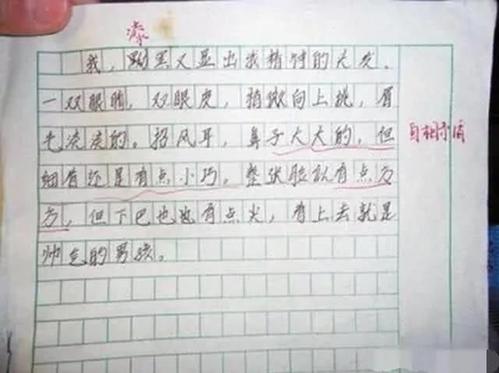 漆
我，黝黑又显出我精神的大发．
一双眼睛，双眼皮，稍微向上挑，眉
毛淡淡的。招风耳，鼻子大大的，但
细看还是有点小巧。整张脸就有点方
方，但下巴也也有点尖，看上去就是
帅气的男孩。
自相矛盾